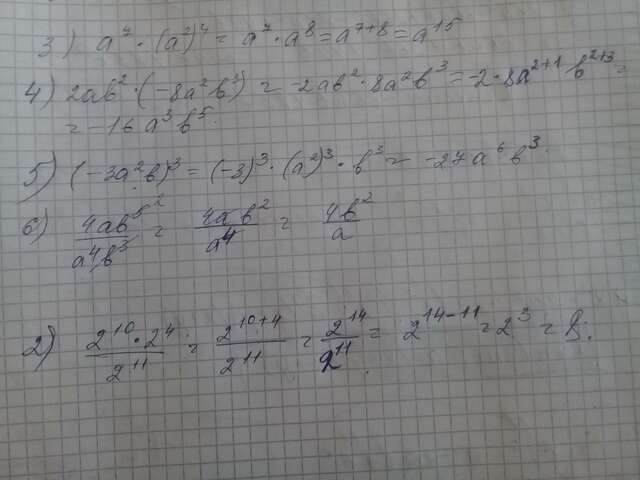 3) a⁷ · (a²)⁴ = a⁷ · a⁸ = a⁷⁺⁸ = a¹⁵
4) 2ab² · (-8a²b³) = -2ab² · 8a²b³ = -2 · 8a²⁺¹ b²⁺³ =
= -16a³b⁵.
5) (-3a²b)³ = (-3)³ · (a²)³ · b³ = -27a⁶b³.
6) 4ab⁵/a⁴b³ ² = 4ab²/a⁴ = 4b²/a
2) 2¹⁰ · 2⁴/2¹¹ = 2¹⁰⁺⁴/2¹¹ = 2¹⁴/2¹¹ = 2¹⁴⁻¹¹ = 2³ = 8.